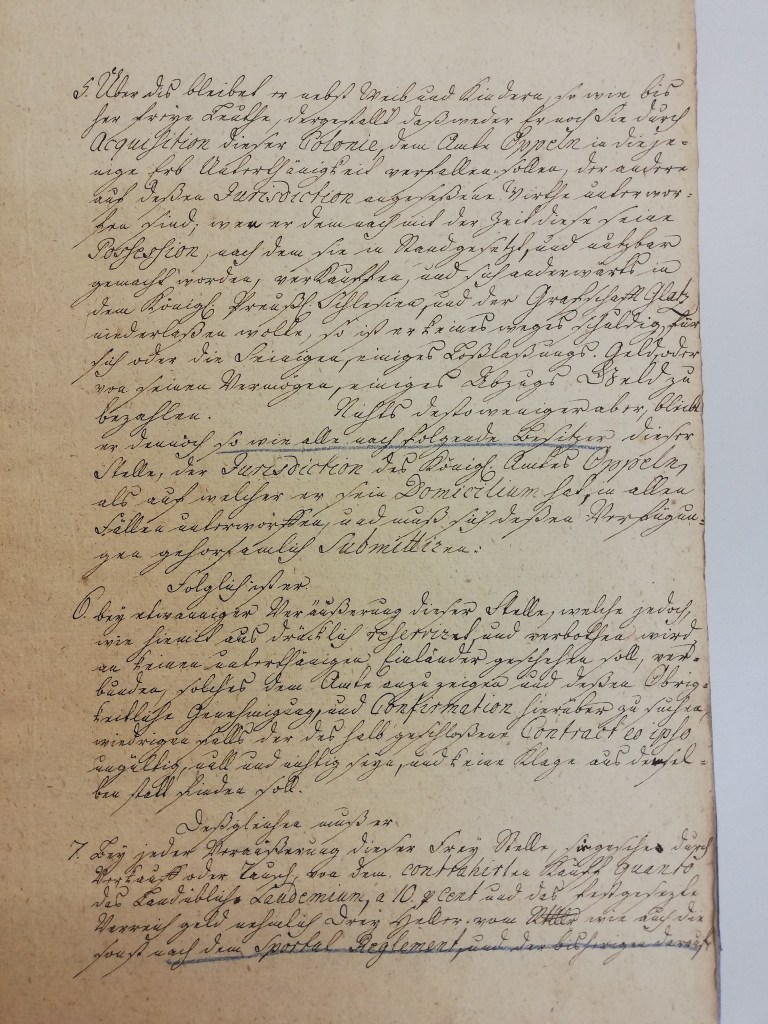 5. Über dis bleibet er nebst Weib und Kindern, so wie bis
her freye Leuthe, dergestallt daß weder Er noch Sie durch
Acquisition dieser Colonie, dem Amte Oppeln in dieje-
nige Erb Unterthänigkeit verfallen sollen, der andere
auf deßen Jurisdiction angeseßene Wirthe unterwor-
fen sind; wen er dem nach mit der Zeit diese seine
Possession, nach dem sie in Stand gesetzt, und nutzbar
gemacht worden, verkauffen, und sich anderwärts in
dem Königl. Preußl. Schlesien, und der Graffschafft Glatz
niederlaßen wolle, so ist er keines weges schuldig, für
sich oder die Seinigen, einiges Loßlaßungs-Geld, oder
von seinen Vermögen, einiges Abzugs Geld zu
bezahlen. Nichts destoweniger aber, bleibt
er dennoch so wie alle nach folgende Besitzer dieser
Stelle, der Jurisdiction des Königl. Amtes Oppeln,
als auf welcher er sein Domicilium hat, in allen
Fällen unterworffen, und muß sich deßen Verfügun-
gen gehorsamlich Submittiren:
Folglich ist er
6. bey etwanniger Veräußerung dieser Stelle, welche jedoch,
wie hiemit aus drücklich reserviret, und verbothen wird
an keinen unterthänigen Einländer geschehen soll, ver-
bunden, solches dem Amte anzuzeigen und deßen Obrig-
keitliche Genehmigung, und Confirmation hierüber zu suchen,
wiedrigen falls der des halb geschloßene Contract eo ipso
ungültig, null und nichtig seyn, und keine Klage aus demsel-
ben statt finden soll.
Deßgleichen muß er
7. Bey jeder Veräußerung dieser Frey Stelle, sie geschehe durch
Verkauff oder Tausch, von dem contrahirten Kauff Quanto
das Landübliche Laudemium, a 10. p Cent und das festgesezte
Verreich geld nehmlich Drey Heller vom wie auch die
sonst nach dem Sportul Reglement, und der bisherigen darauf